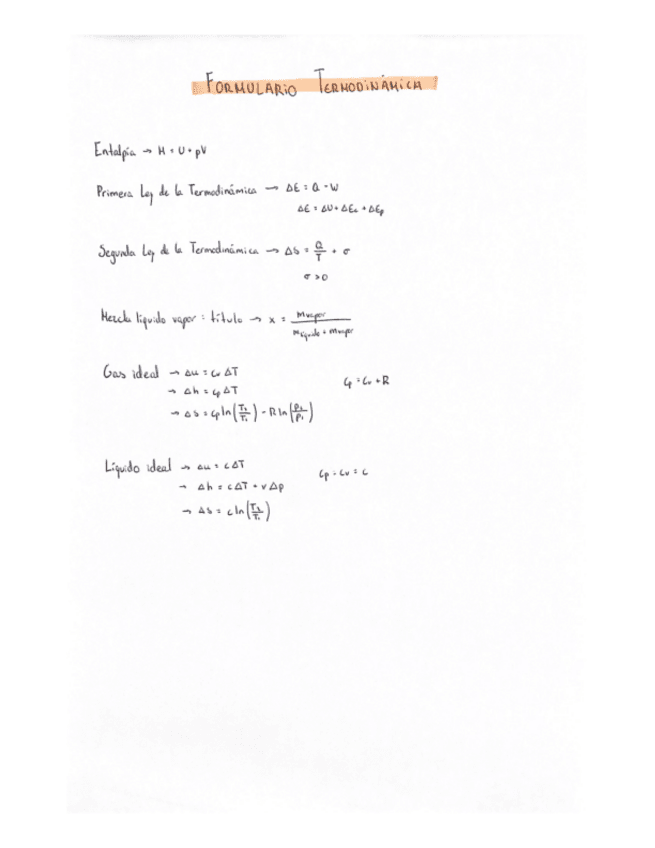 FORMULARIO TERMODINÁMICA
Entalpía → H = U + pV
Primera Ley de la Termodinámica → ΔE = Q - W
ΔE = ΔU + ΔEc + ΔEp
Segunda Ley de la Termodinámica → Δs = Q/T + σ
σ > 0
Mezcla líquido vapor : título → x = mvapor / (mlíquido + mvapor)
Gas ideal → Δu = cv ΔT
cp = cv + R
→ Δh = cp ΔT
→ Δs = cp ln(T2/T1) - R ln(p2/p1)
Líquido ideal → Δu = c ΔT
cp = cv = c
→ Δh = c ΔT + v Δp
→ Δs = c ln(T2/T1)